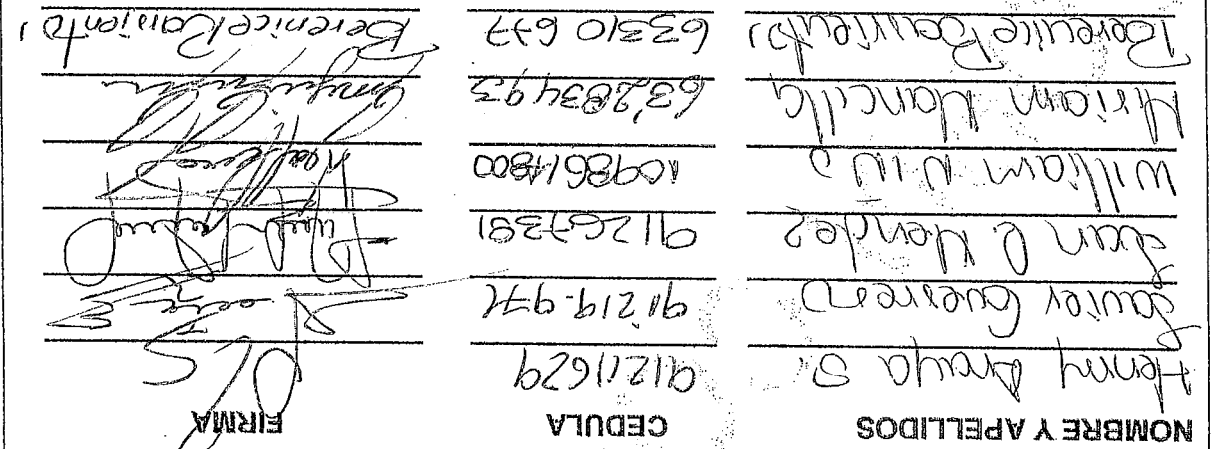 NOMBRE Y APELLIDOS CEDULA FIRMA
Henry Araya S. 91211629
Javier Guerrero 91'219.971
Juan C Mendez 91267381
William Niño 1098614800
Miriam Mancilla 63'283493
Berenice Barrientos 63310677 Berenice Barrientos